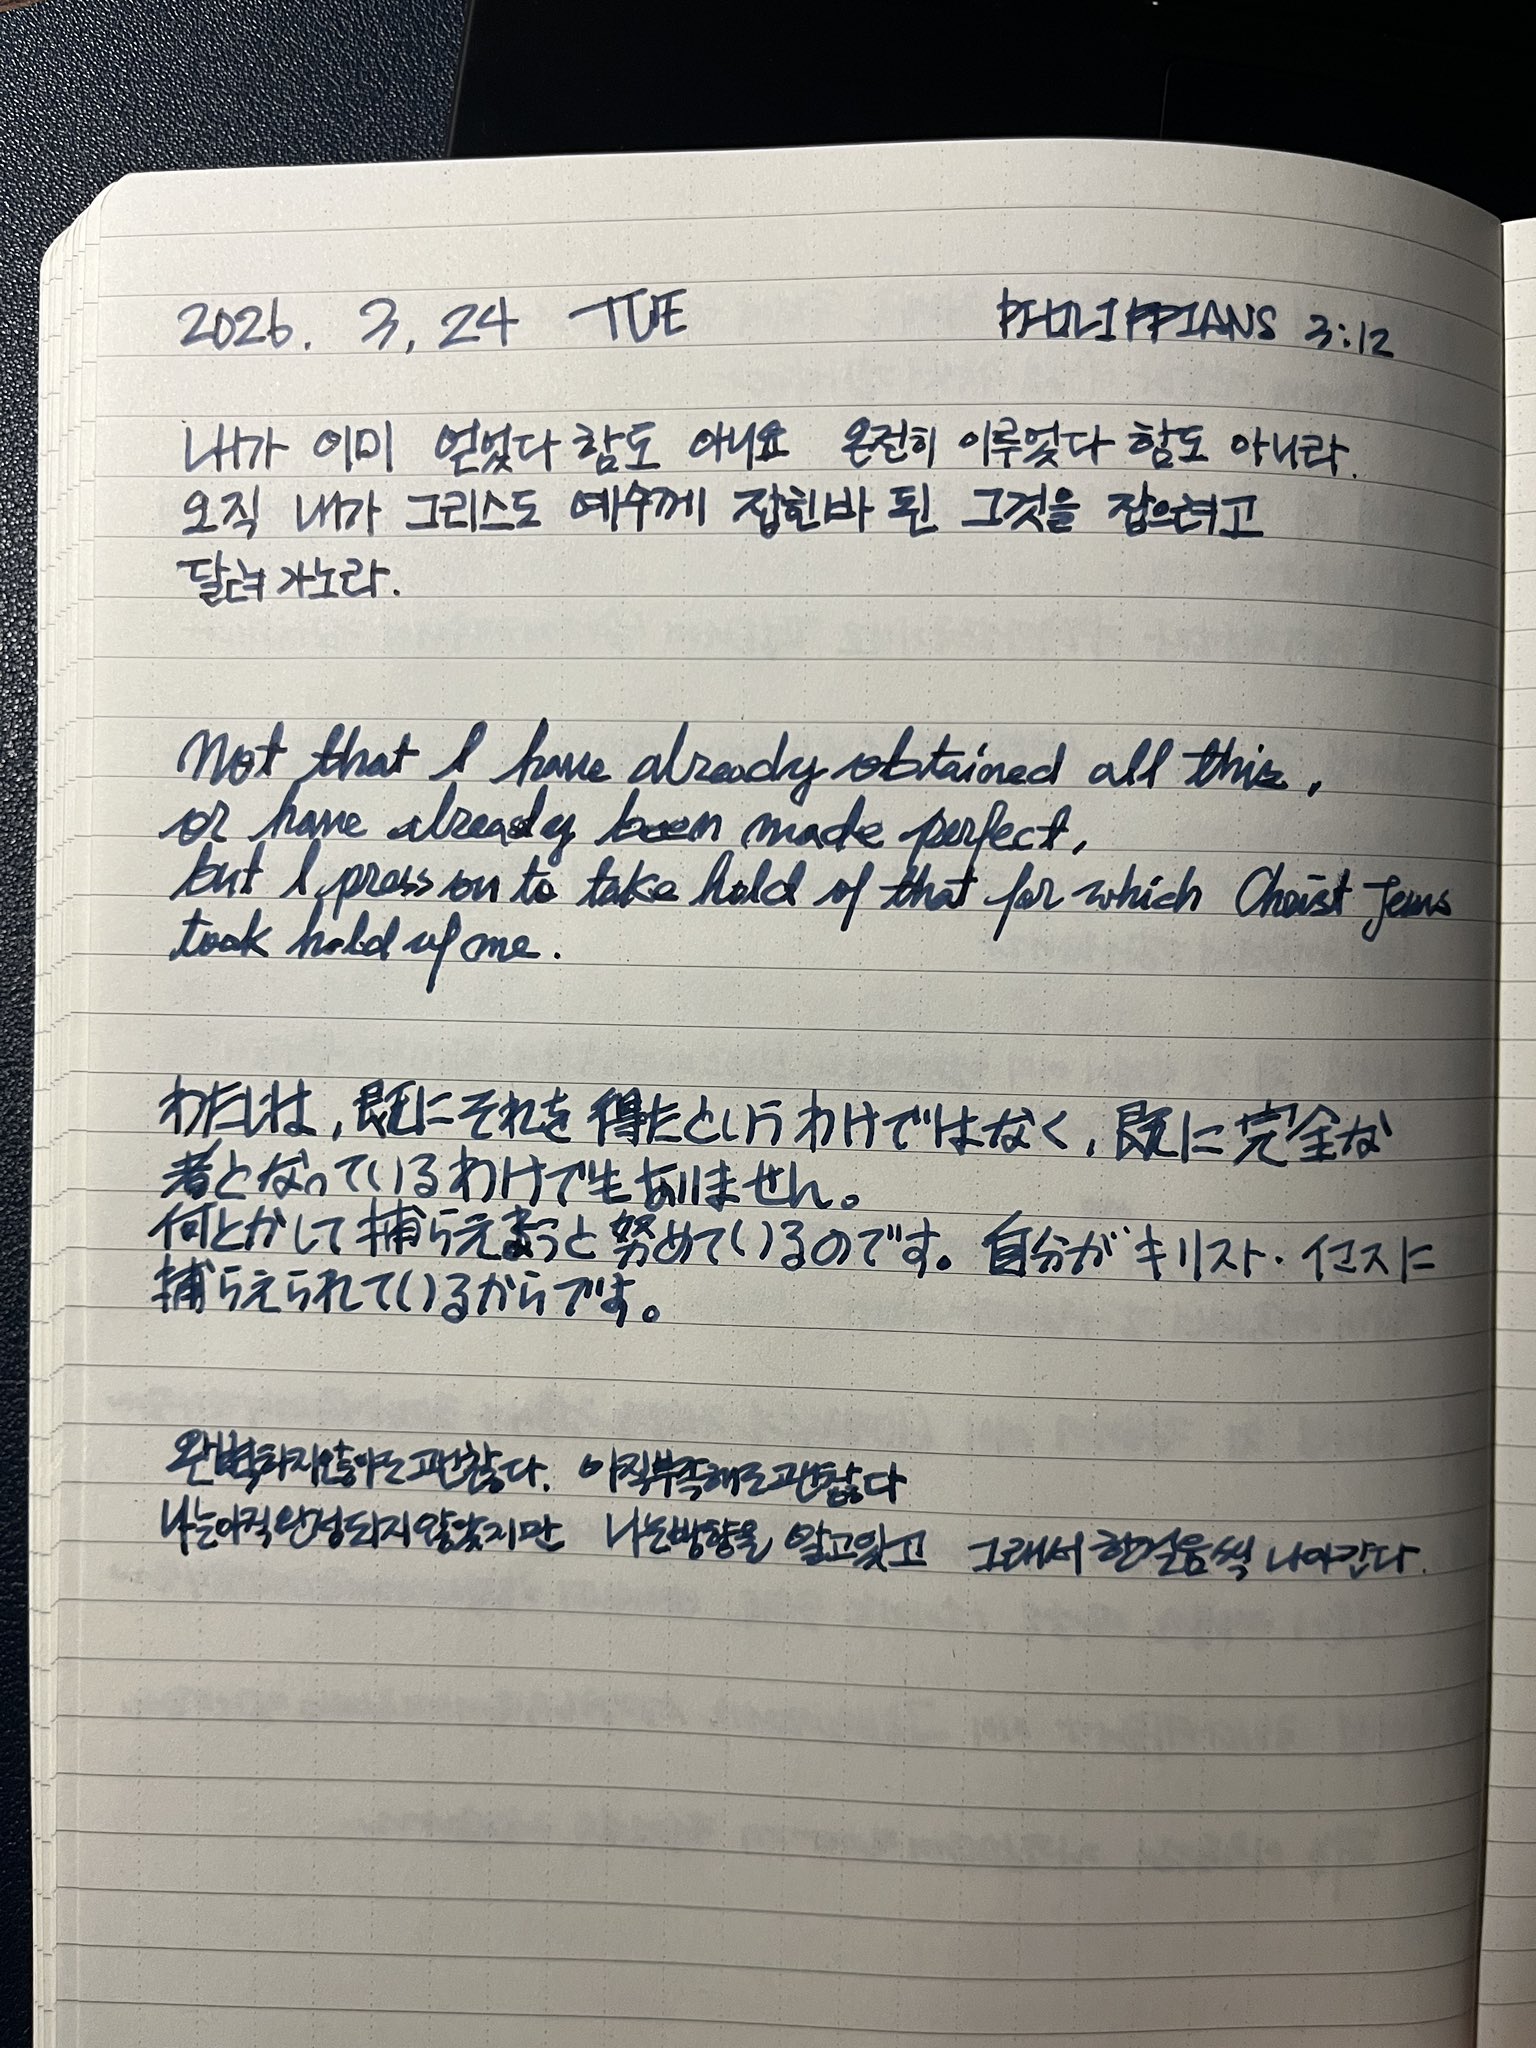 2026. 3. 24 TUE PHILIPPIANS 3:12
내가 이미 얻었다 함도 아니요 온전히 이루었다 함도 아니라.
오직 내가 그리스도 예수께 잡힌바 된 그것을 잡으려고
달려가노라.
Not that I have already obtained all this,
or have already been made perfect,
but I press on to take hold of that for which Christ Jesus
took hold of me.
わたしは,既にそれを得たというわけではなく,既に完全な
者となっているわけでもありません。
何とかして捕らえようと努めているのです。自分がキリスト・イエスに
捕らえられているからです。
완벽하지않아도괜찮다. 아직부족해도괜찮다
나는아직완성되지않았지만 나는방향을 알고있고 그래서한걸음씩 나아간다.